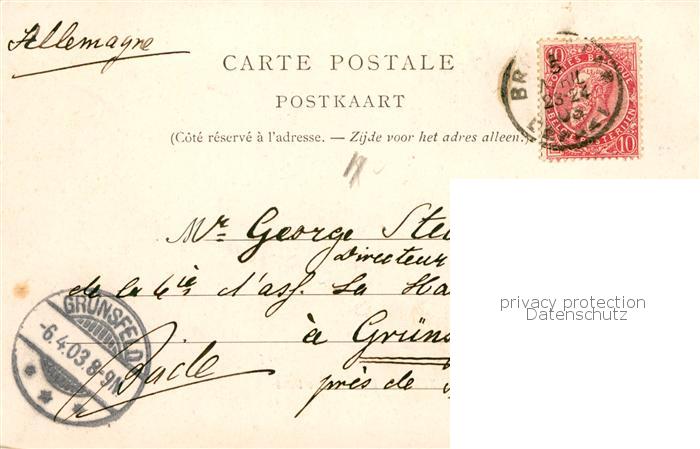 Allemagne
CARTE POSTALE
POSTKAART
(Côté réservé à l'adresse. — Zijde voor het adres alleen.)
10 10
5
23-24
10
Mr George Ste
Directeur
de la Cie d'ass. La Ha
à Grüns
Bade
près de
GRÜNSFELD
-6.4.03.8-9N.
privacy protection
Datenschutz